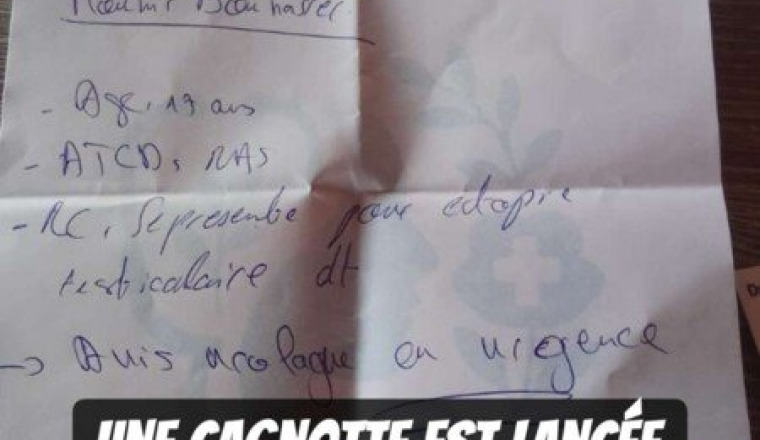 - Age, 19 ans
- ATCD, RAS
- RC, Se presente pour éctopie
testiculaire dt
→ Avis urologue en urgence
UNE CAGNOTTE EST LANCÉE